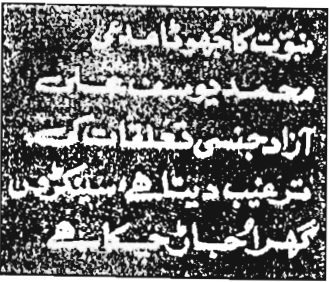 نبوّت کا جھوٹا مدعی
محمد یوسف علی نے
آزاد جنسی تعلقات کے
ترغیب دیتا ہے، سینکڑوں
گھر اُجاڑ چکا ہے